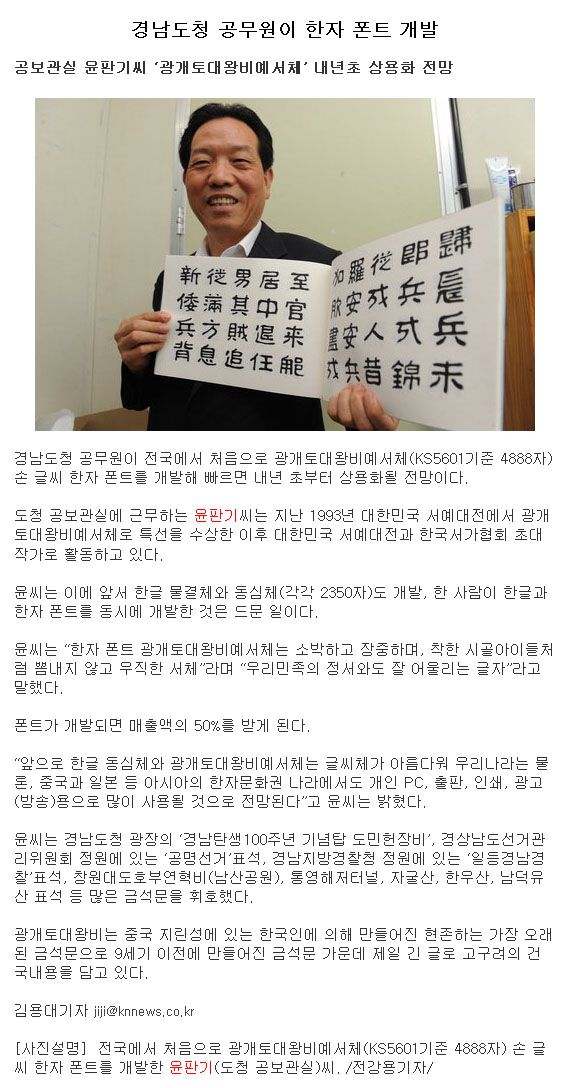 경남도청 공무원이 한자 폰트 개발
공보관실 윤판기씨 ‘광개토대왕비예서체’ 내년초 상용화 전망
新 従 男 居 至
倭 滿 其 中 官
兵 方 賊 退 来
背 息 追 任
加 羅 従 即 歸
安 兵
安 人 兵
昔 錦 未
경남도청 공무원이 전국에서 처음으로 광개토대왕비예서체(KS5601기준 4888자)
손 글씨 한자 폰트를 개발해 빠르면 내년 초부터 상용화될 전망이다.
도청 공보관실에 근무하는 윤판기씨는 지난 1993년 대한민국 서예대전에서 광개
토대왕비예서체로 특선을 수상한 이후 대한민국 서예대전과 한국서가협회 초대
작가로 활동하고 있다.
윤씨는 이에 앞서 한글 물결체와 동심체(각각 2350자)도 개발, 한 사람이 한글과
한자 폰트를 동시에 개발한 것은 드문 일이다.
윤씨는 “한자 폰트 광개토대왕비예서체는 소박하고 장중하며, 착한 시골아이들처
럼 뽐내지 않고 우직한 서체”라며 “우리민족의 정서와도 잘 어울리는 글자”라고
말했다.
폰트가 개발되면 매출액의 50%를 받게 된다.
“앞으로 한글 동심체와 광개토대왕비예서체는 글씨체가 아름다워 우리나라는 물
론, 중국과 일본 등 아시아의 한자문화권 나라에서도 개인 PC, 출판, 인쇄, 광고
(방송)용으로 많이 사용될 것으로 전망된다”고 윤씨는 밝혔다.
윤씨는 경남도청 광장의 ‘경남탄생100주년 기념탑 도민헌장비’, 경상남도선거관
리위원회 정원에 있는 ‘공명선거’표석, 경남지방경찰청 정원에 있는 ‘일등경남경
찰’표석, 창원대도호부연혁비(남산공원), 통영해저터널, 자굴산, 한우산, 남덕유
산 표석 등 많은 금석문을 휘호했다.
광개토대왕비는 중국 지린성에 있는 한국인에 의해 만들어진 현존하는 가장 오래
된 금석문으로 9세기 이전에 만들어진 금석문 가운데 제일 긴 글로 고구려의 건
국내용을 담고 있다.
김용대기자 jiji@knnews.co.kr
[사진설명] 전국에서 처음으로 광개토대왕비예서체(KS5601기준 4888자) 손 글
씨 한자 폰트를 개발한 윤판기(도청 공보관실)씨. /전강용기자/